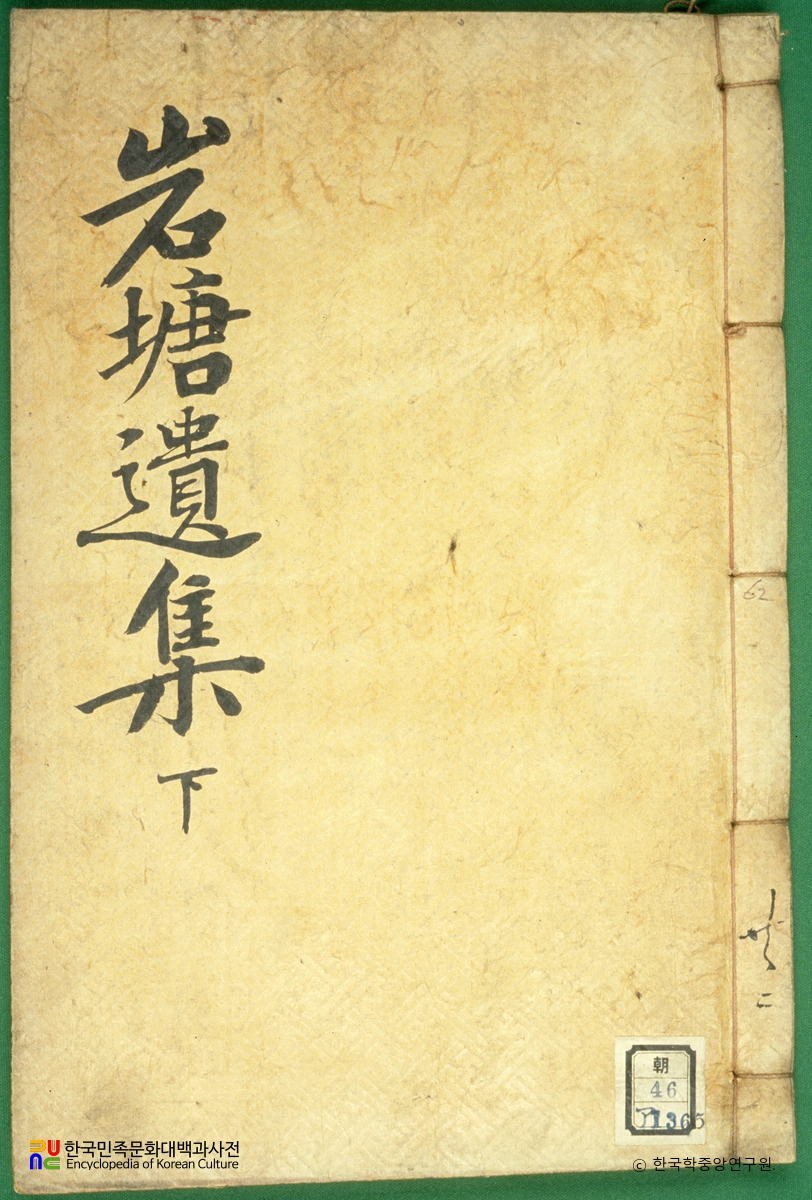 岩塘遺集 下
62
共二
朝
46
ア1365
한국민족문화대백과사전
Encyclopedia of Korean Culture
© 한국학중앙연구원.